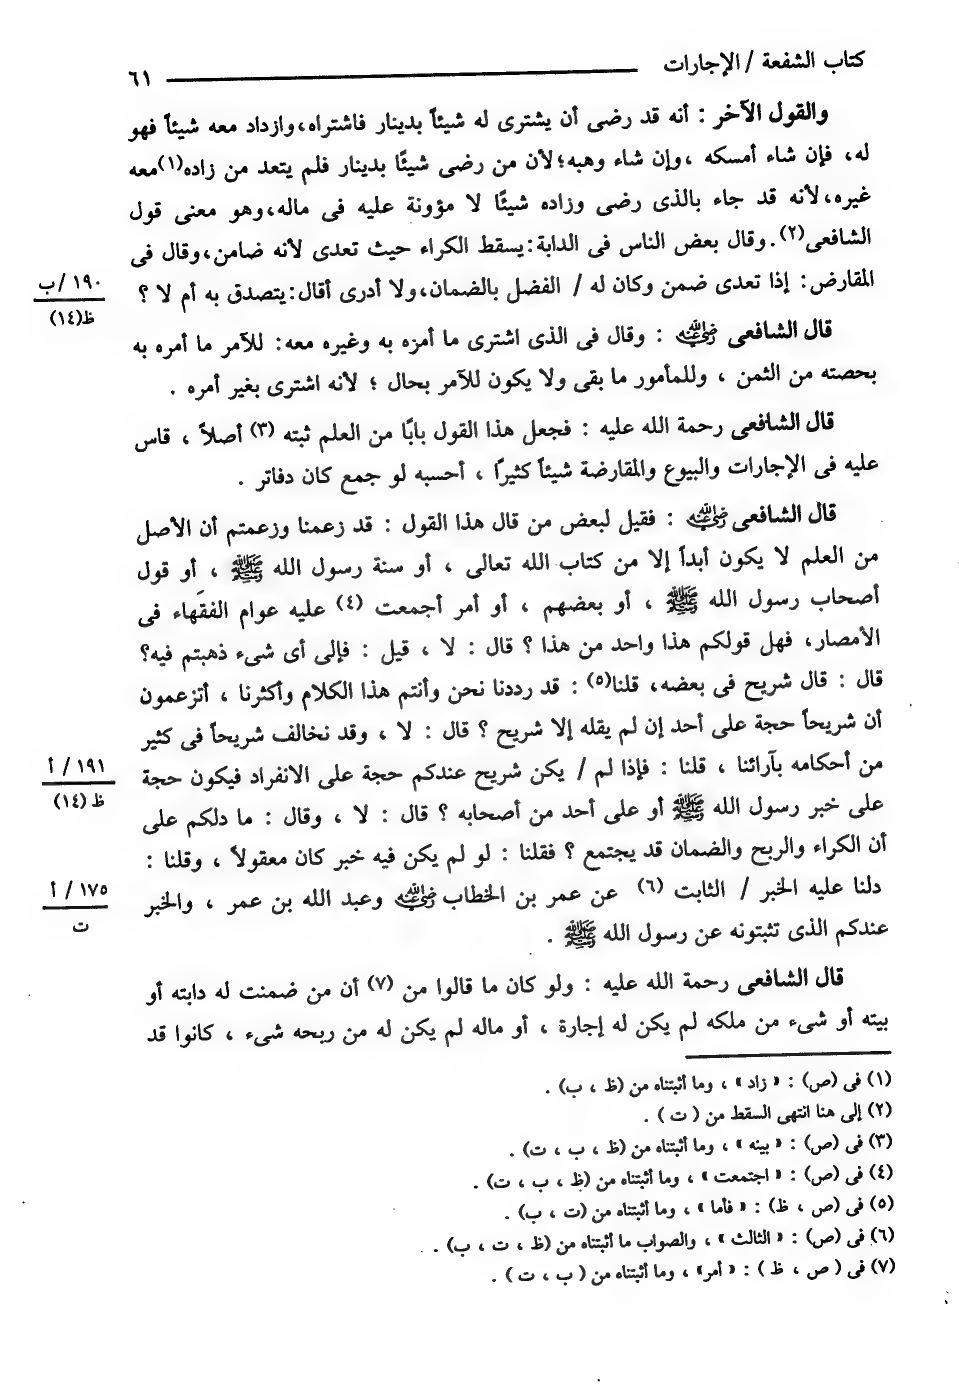 كتاب الشفعة / الإجارات
٦١
والقول الآخر : أنه قد رضى أن يشترى له شيئاً بدينار فاشتراه، وازداد معه شيئاً فهو
له، فإن شاء أمسكه ، وإن شاء وهبه؛ لأن من رضى شيئًا بدينار فلم يتعد من زاده(١) معه
غيره، لأنه قد جاء بالذى رضى وزاده شيئًا لا مؤونة عليه فى ماله، وهو معنى قول
الشافعى(٢). وقال بعض الناس فى الدابة: يسقط الكراء حيث تعدى لأنه ضامن، وقال فى
المقارض: إذا تعدى ضمن وكان له / الفضل بالضمان، ولا أدرى أقال: يتصدق به أم لا ؟
١٩٠ / ب
ظ(١٤)
قال الشافعى رضي الله عنه : وقال فى الذى اشترى ما أمزه به وغيره معه: للآمر ما أمره به
بحصته من الثمن ، وللمأمور ما بقى ولا يكون للآمر بحال ؛ لأنه اشترى بغير أمره .
قال الشافعى رحمة الله عليه : فجعل هذا القول بابًا من العلم ثبته (٣) أصلاً ، قاس
عليه فى الإجارات والبيوع والمقارضة شيئاً كثيرًا ، أحسبه لو جمع كان دفاتر .
قال الشافعى رضي الله عنه : فقيل لبعض من قال هذا القول : قد زعمنا وزعمتم أن الأصل
من العلم لا يكون أبداً إلا من كتاب الله تعالى ، أو سنة رسول الله ﷺ ، أو قول
أصحاب رسول الله ﷺ ، أو بعضهم ، أو أمر أجمعت (٤) عليه عوام الفقهاء فى
الأمصار، فهل قولكم هذا واحد من هذا ؟ قال : لا ، قيل : فإلى أى شىء ذهبتم فيه؟
قال : قال شريح فى بعضه، قلنا(٥) : قد رددنا نحن وأنتم هذا الكلام وأكثرنا ، أتزعمون
أن شريحاً حجة على أحد إن لم يقله إلا شريح ؟ قال : لا ، وقد نخالف شريحاً فى كثير
من أحكامه بآرائنا ، قلنا : فإذا لم / يكن شريح عندكم حجة على الانفراد فيكون حجة
١٩١ / أ
ظ (١٤)
على خبر رسول الله ﷺ أو على أحد من أصحابه ؟ قال : لا ، وقال : ما دلكم على
أن الكراء والربح والضمان قد يجتمع ؟ فقلنا : لو لم يكن فيه خبر كان معقولاً ، وقلنا :
دلنا عليه الخبر / الثابت (٦) عن عمر بن الخطاب رضي الله عنه وعبد الله بن عمر ، والخبر
١٧٥ / أ
ت
عندكم الذى تثبتونه عن رسول الله ﷺ .
قال الشافعى رحمة الله عليه : ولو كان ما قالوا من (٧) أن من ضمنت له دابته أو
بيته أو شىء من ملكه لم يكن له إجارة ، أو ماله لم يكن له من ربحه شىء ، كانوا قد
(١) فى (ص) : « زاد » ، وما أثبتناه من (ظ ، ب) .
(٢) إلى هنا انتهى السقط من ( ت ) .
(٣) فى (ص) : « بينه » ، وما أثبتناه من (ظ ، ب ، ت) .
(٤) فى (ص) : « اجتمعت » ، وما أثبتناه من (ظ ، ب ، ت) .
(٥) فى (ص ، ظ) : « فأما » ، وما أثبتناه من (ت ، ب) .
(٦) فى (ص) : « الثالث » ، والصواب ما أثبتناه من (ظ ، ت ، ب) .
(٧) فى ( ص ، ظ ) : « أمر» ، وما أثبتناه من ( ب ، ت ) .